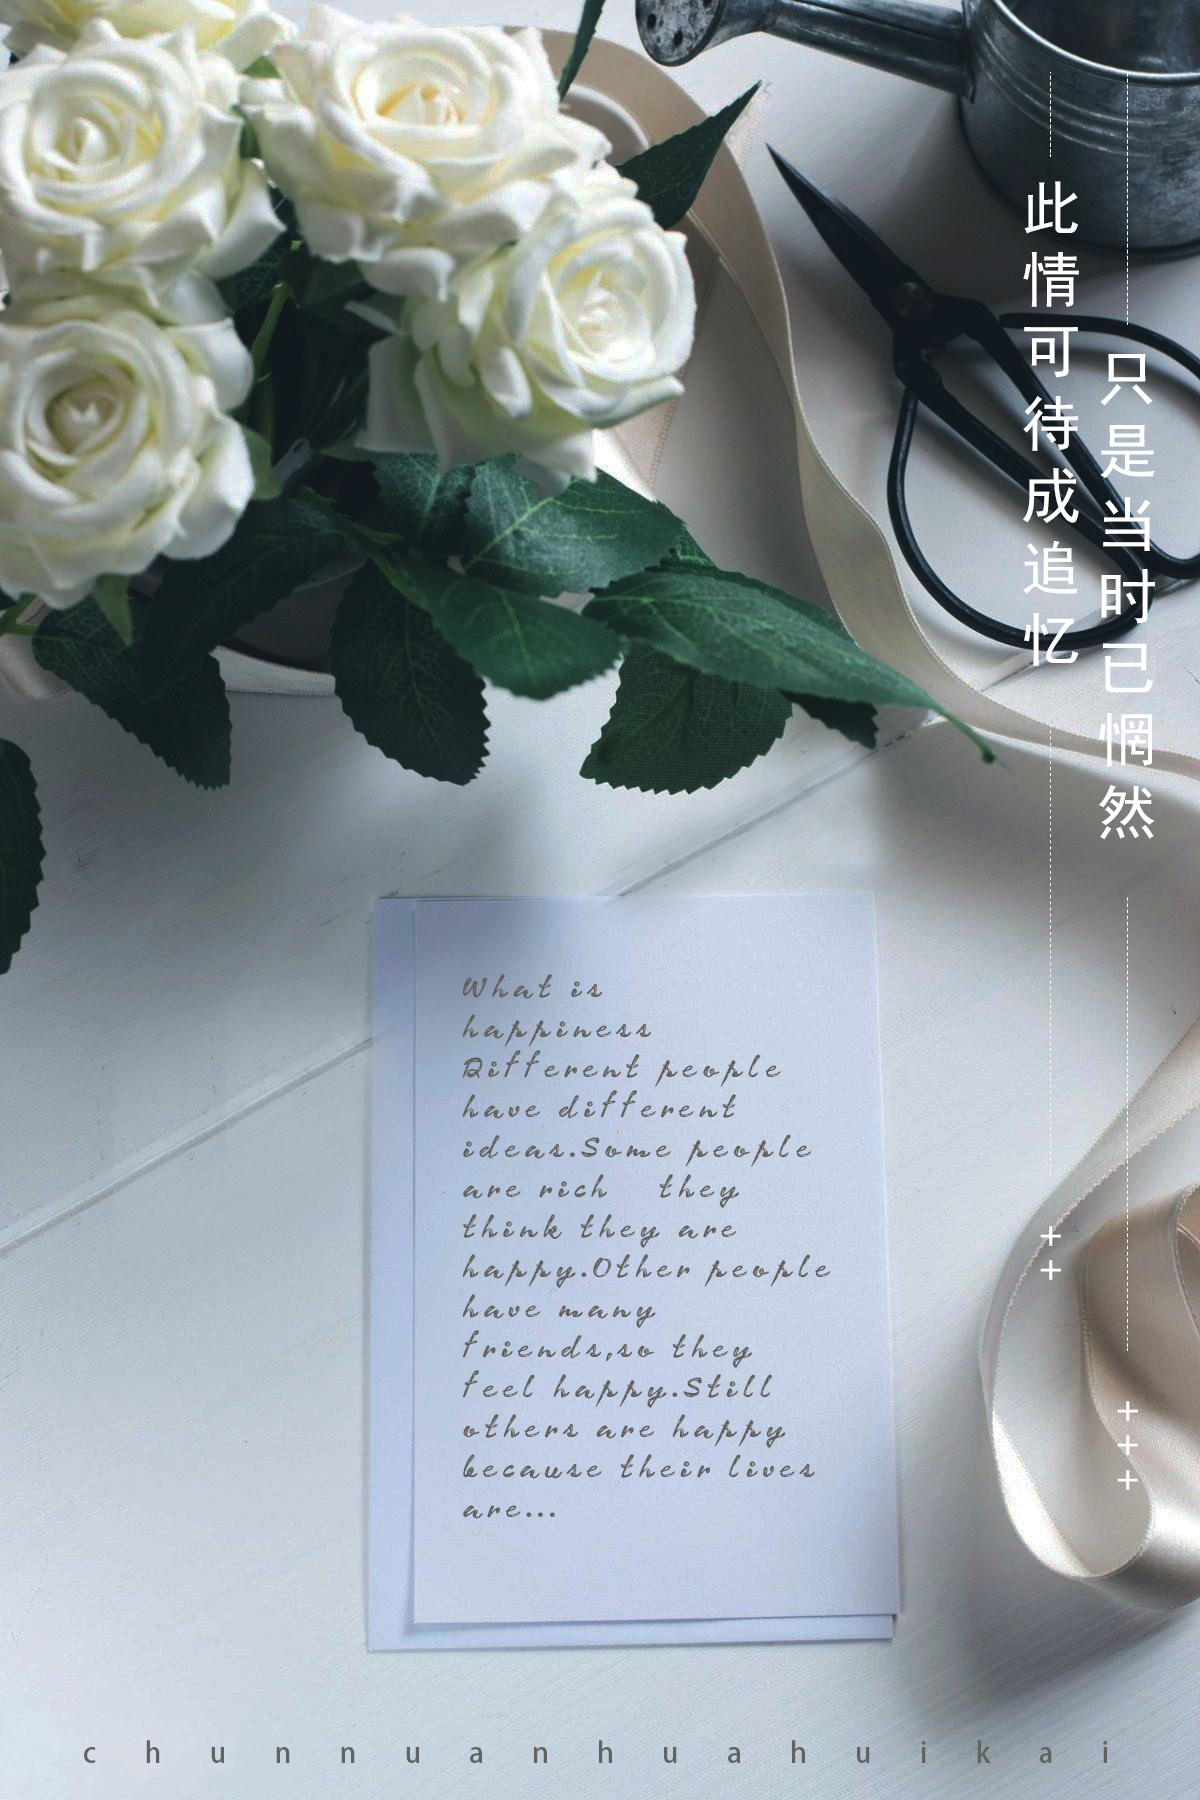 此情可待成追忆
只是当时已惘然
What is
happiness
Different people
have different
ideas.Some people
are rich they
think they are
happy.Other people
have many
friends,so they
feel happy.Still
others are happy
because their lives
are...
++
+++
chunnuanhuahuikai